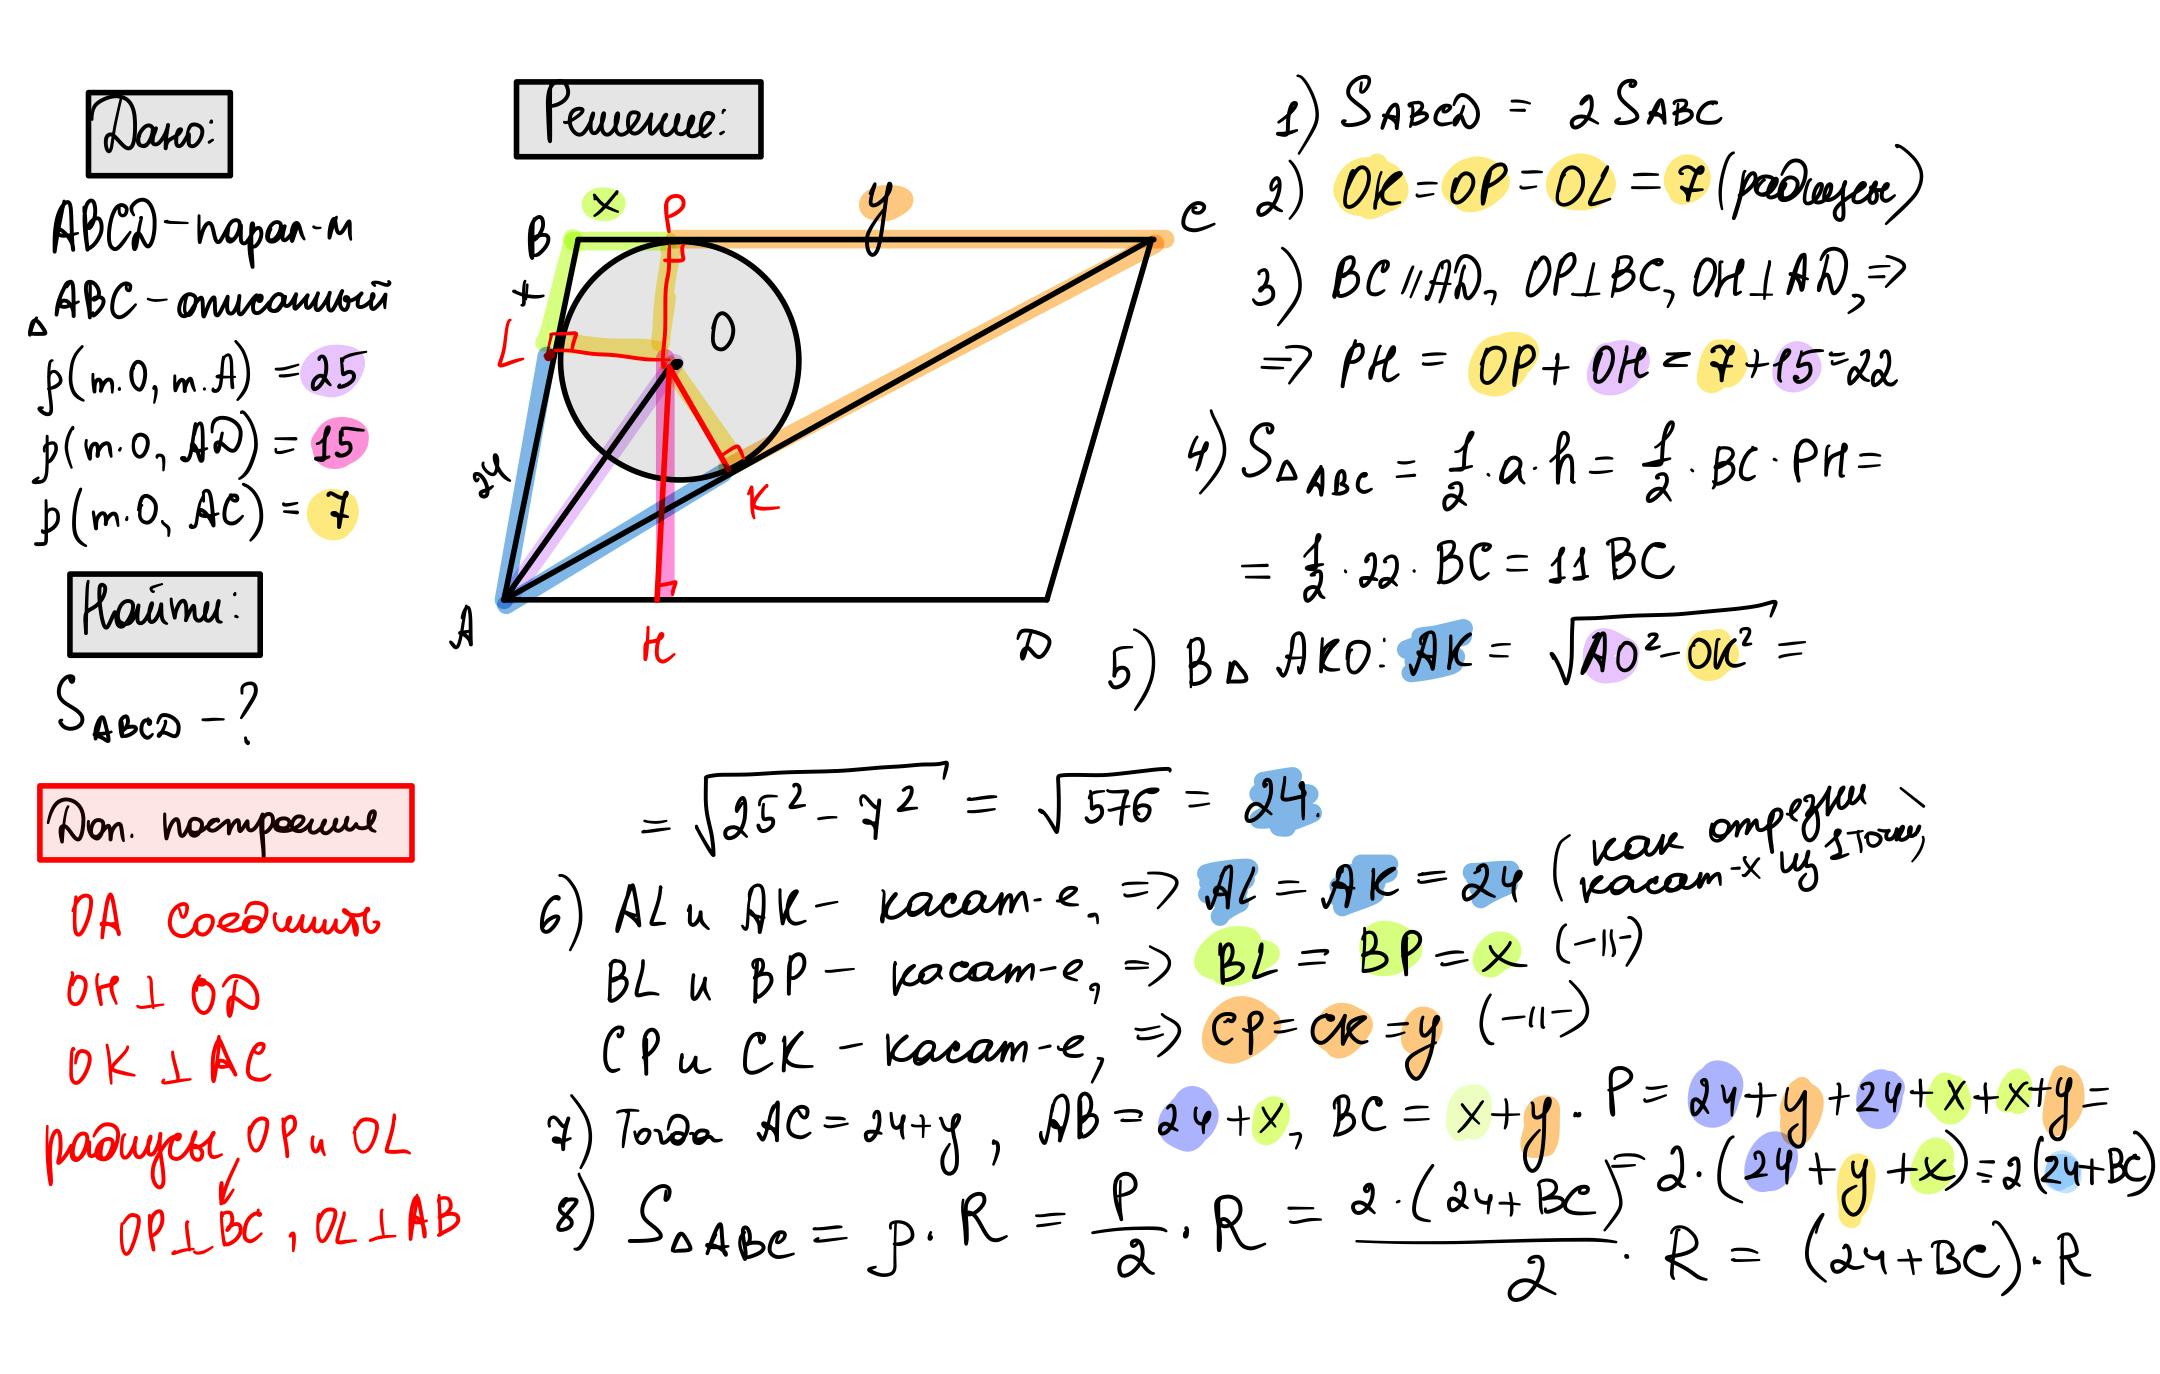 Дано:
ABCD - парал-м
△ABC - описанный
ρ(т.O, т.A) = 25
ρ(т.O, AD) = 15
ρ(т.O, AC) = 7
Найти:
S ABCD - ?
Доп. построение
OA соединить
OH ⊥ OD
OK ⊥ AC
радиусы OP и OL
OP ⊥ BC, OL ⊥ AB
Решение:
x
P
y
B
C
x
L
O
24
K
A
H
D
1) S ABCD = 2 S ABC
2) OK = OP = OL = 7 (радиусы)
3) BC // AD, OP ⊥ BC, OH ⊥ AD, =>
=> PH = OP + OH = 7 + 15 = 22
4) S △ABC = 1/2 · a · h = 1/2 · BC · PH =
= 1/2 · 22 · BC = 11 BC
5) В △ AKO: AK = √(AO² - OK²) =
= √(25² - 7²) = √576 = 24.
6) AL и AK - касат-е, => AL = AK = 24 (как отрезки касат-х из 1 точки)
BL и BP - касат-е, => BL = BP = x (-11-)
CP и CK - касат-е, => CP = CK = y (-11-)
7) Тогда AC = 24+y, AB = 24+x, BC = x+y. P = 24+y+24+x+x+y =
= 2·(24+y+x) = 2(24+BC)
8) S △ABC = p · R = P/2 · R = 2·(24+BC)/2 · R = (24+BC)·R